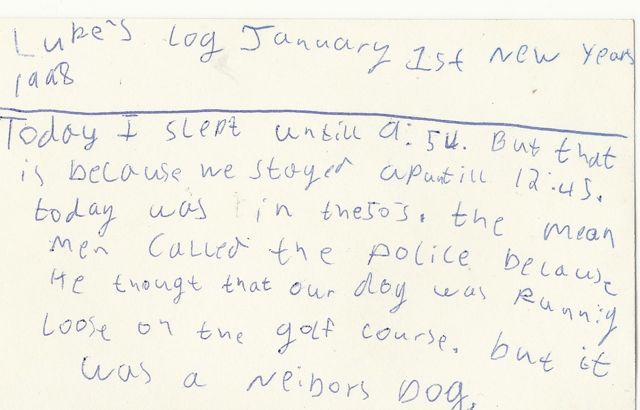 Luke's Log January 1st New Years
1998
Today I slept untill 9:54. But that
is because we stayed up untill 12:45.
today was in the 50's. the mean
men called the police because
He thougt that our dog was Runnig
Loose on the golf course. but it
was a Neibors Dog.